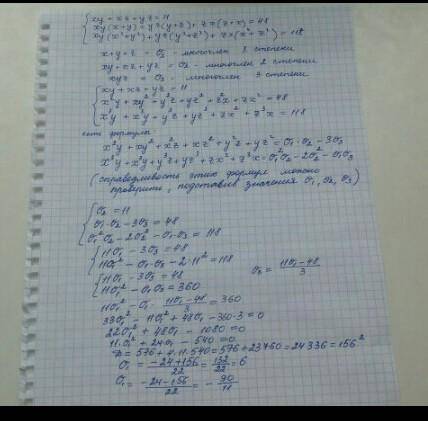 xy + xz + yz = 11
xy(x+y) + yz(y+z) + zx(z+x) = 48
xy(x²+y²) + yz(y²+z²) + zx(x²+z²) = 118
x+y+z = σ₁ - многочлен 1 степени
xy+xz+yz = σ₂ - многочлен 2 степени
xyz = σ₃ - многочлен 3 степени
xy + xz + yz = 11
x²y + xy² + y²z + yz² + z²x + zx² = 48
x³y + xy³ + y³z + yz³ + zx³ + z³x = 118
есть формулы
x²y + xy² + x²z + xz² + y²z + yz² = σ₁σ₂ - 3σ₃
x³y + xy³ + y³z + yz³ + zx³ + z³x = σ₁²σ₂ - 2σ₂² - σ₁σ₃
(справедливость этих формул можно
проверить, подставив значения σ₁, σ₂, σ₃)
σ₂ = 11
σ₁·σ₂ - 3σ₃ = 48
σ₁²σ₂ - 2σ₂² - σ₁·σ₃ = 118
11σ₁ - 3σ₃ = 48
11σ₁² - σ₁σ₃ - 2·11² = 118
11σ₁ - 3σ₃ = 48 σ₃ = (11σ₁ - 48)/3
11σ₁² - σ₁σ₃ = 360
11σ₁² - σ₁ · (11σ₁ - 48)/3 = 360
33σ₁² - 11σ₁² + 48σ₁ - 360·3 = 0
22σ₁² + 48σ₁ - 1080 = 0
11σ₁² + 24σ₁ - 540 = 0
D = 576 + 4·11·540 = 576 + 23760 = 24336 = 156²
σ₁ = (-24+156)/22 = 132/22 = 6
σ₁ = (-24-156)/22 = -90/11